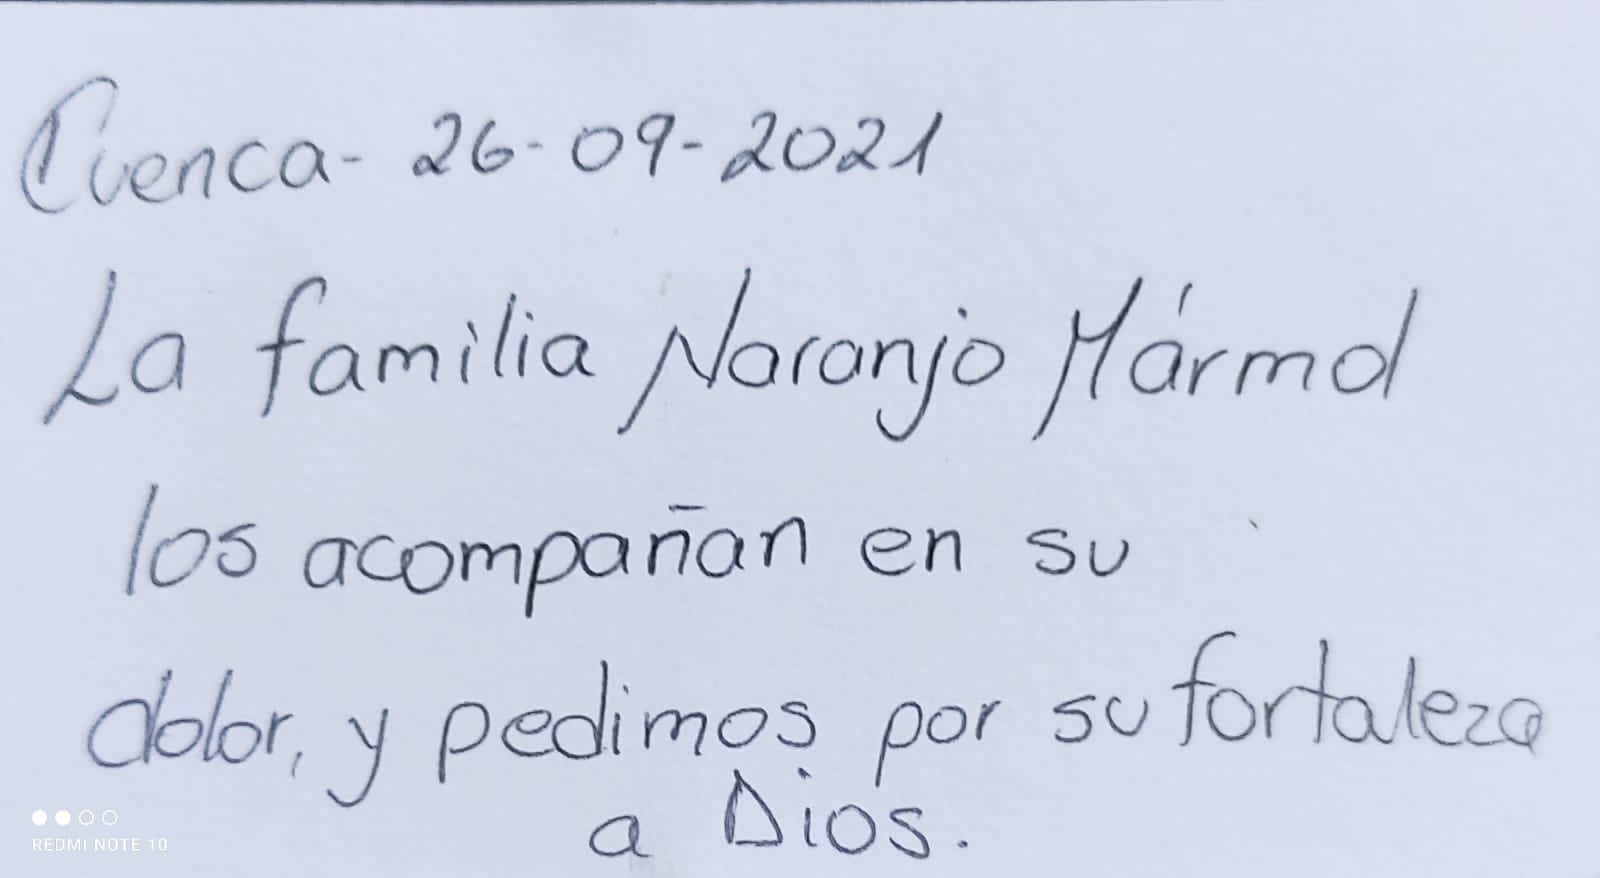 Cuenca- 26-09-2021
La familia Naranjo Mármol
los acompañan en su
dolor, y pedimos por su fortaleza
a Dios.
REDMI NOTE 10